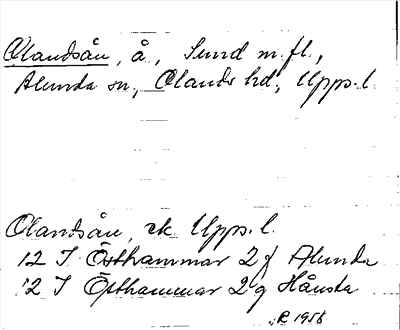 Olandsån, å, Sund m.fl.,
Alunda sn, Olands hd, Upps. l.
Olandsån, ek. Upps. l.
12 I Östhammar 2 f Alunda
12 I Östhammar 2 g Hånsta
R 1958